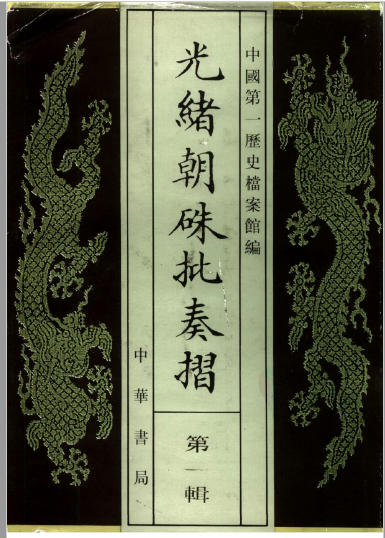 中國第一歷史檔案館編
光緒朝硃批奏摺
第一輯
中華書局